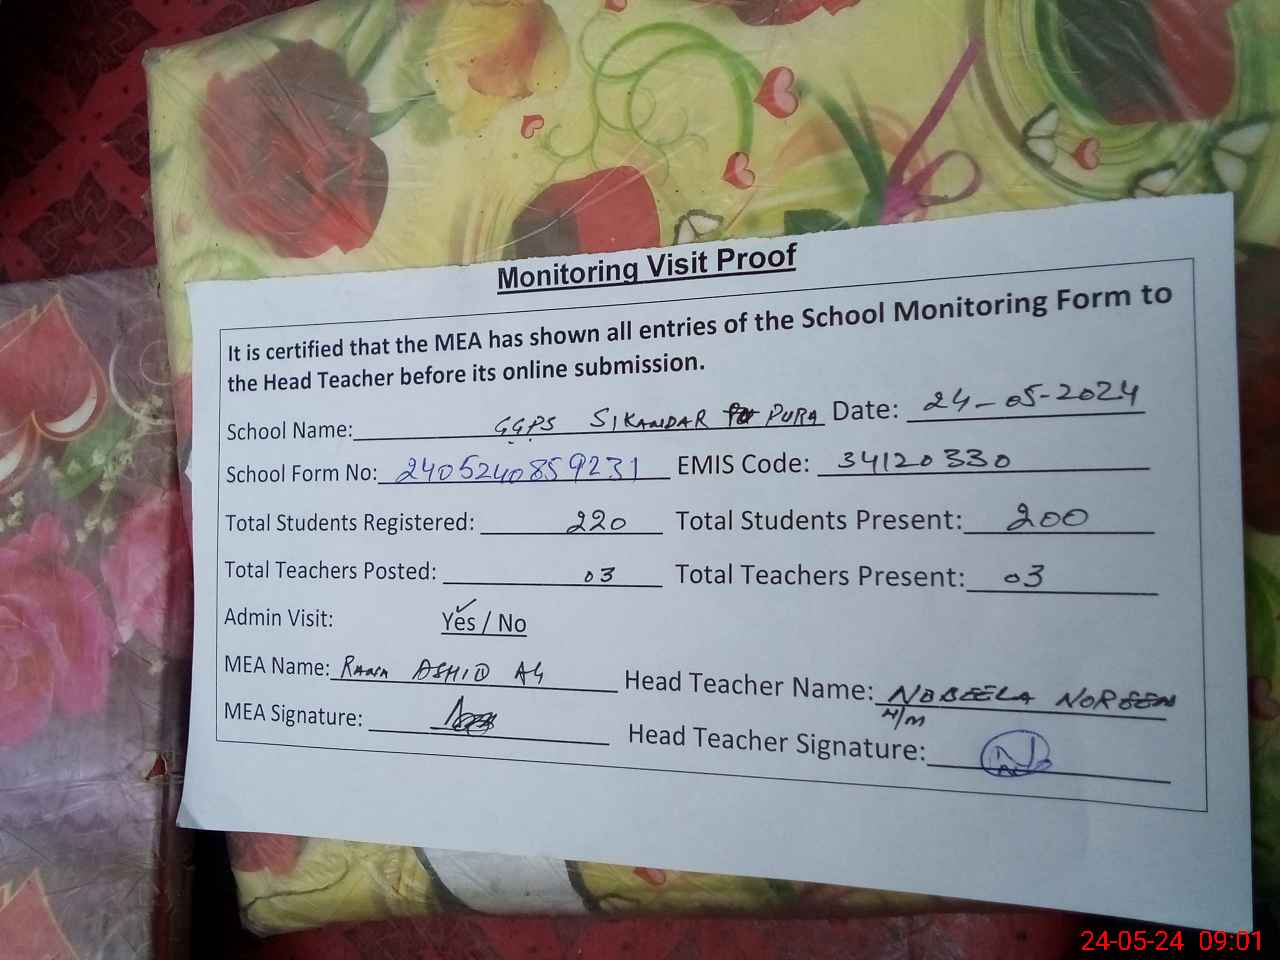 Monitoring Visit Proof
It is certified that the MEA has shown all entries of the School Monitoring Form to
the Head Teacher before its online submission.
School Name: GGPS SIKANDAR PURA Date: 24-05-2024
School Form No: 2405240859231 EMIS Code: 34120330
Total Students Registered: 220 Total Students Present: 200
Total Teachers Posted: 03 Total Teachers Present: 03
Admin Visit: Yes / No
MEA Name: Head Teacher Name: NABEELA NOREEN
H/M
MEA Signature: Head Teacher Signature:
24-05-24 09:01